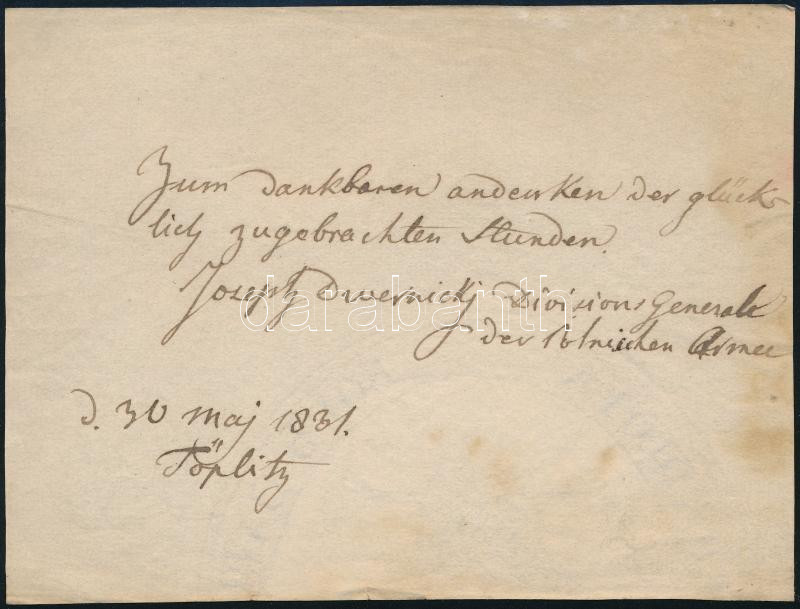 Zum dankbaren andenken der glück-
lich zugebrachten Stunden.
Joseph Dwernickj Divisions Generale
der Polnischen Armee
d. 30 maj 1831.
Töplitz
darabanth